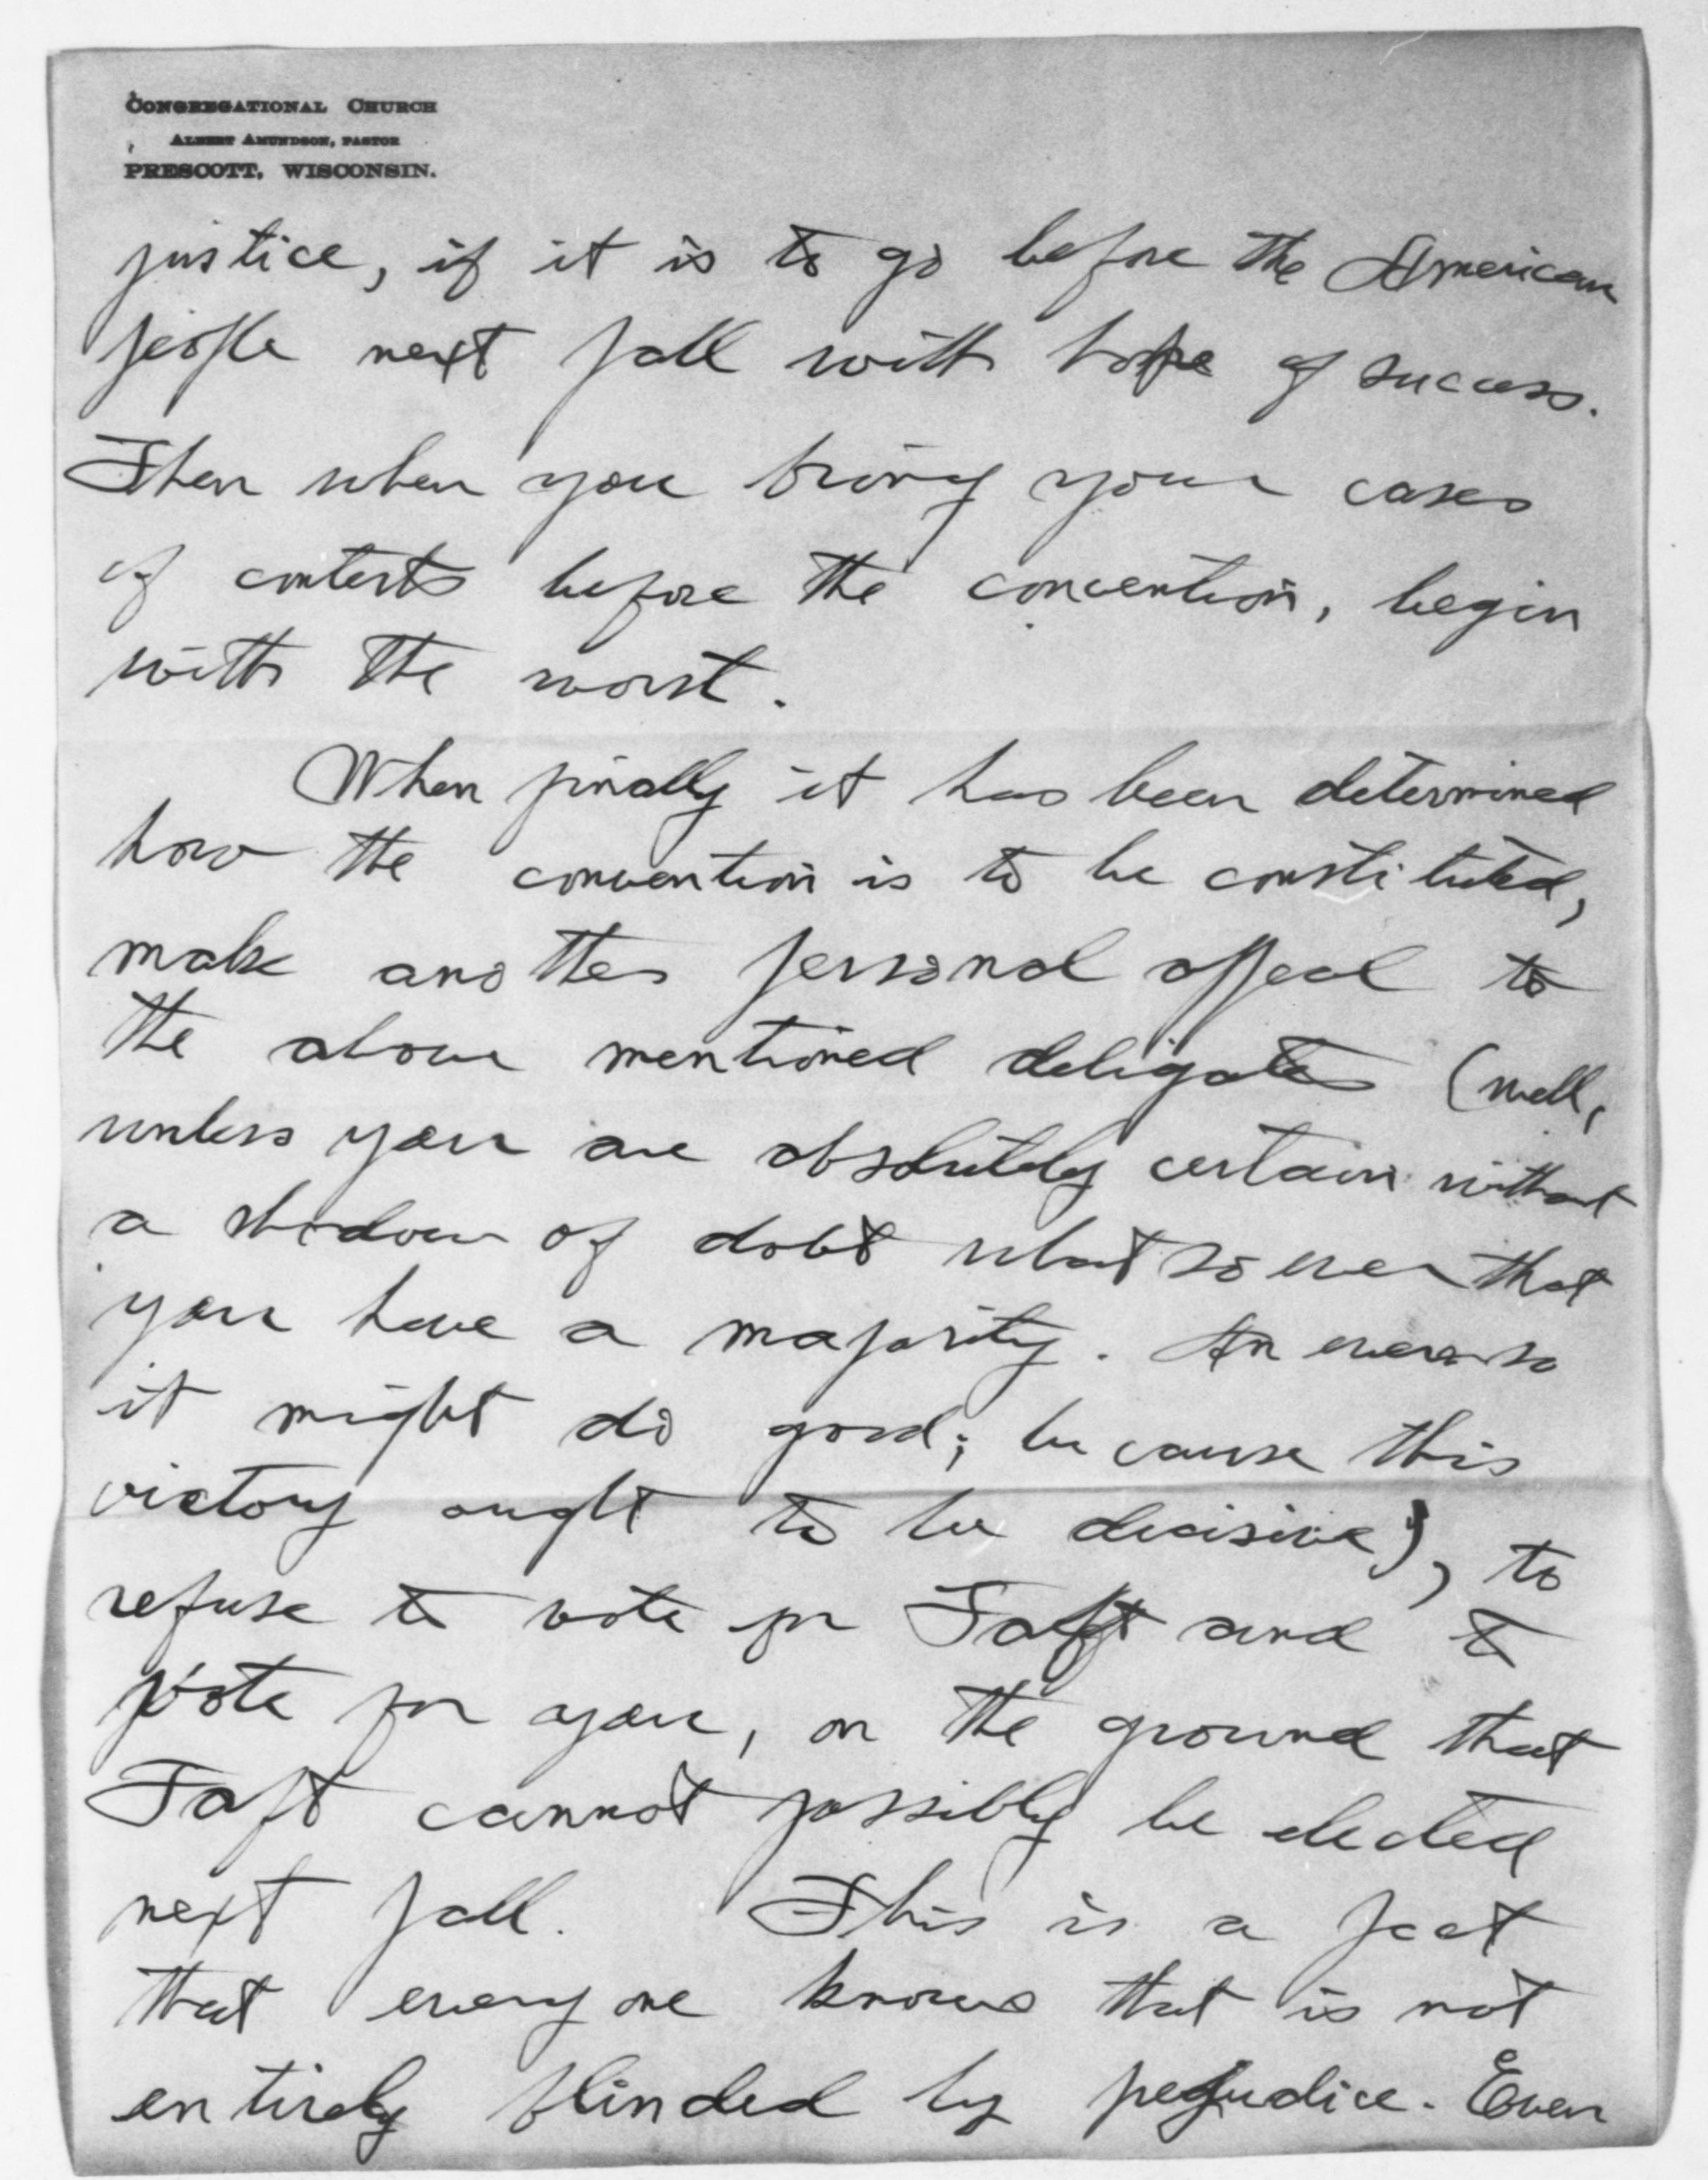 CONGREGATIONAL CHURCH
ALBERT AMUNDSON, PASTOR
PRESCOTT, WISCONSIN.
justice, if it is to go before the American
people next fall with hope of success.
Then when you bring your cases
of contests before the convention, begin
with the worst.
When finally it has been determined
how the convention is to be constituted,
make another personal appeal to
the above mentioned deligates (well,
unless you are absolutely certain without
a shadow of dobt whatsoever that
you have a majority. An even so
it might do good; because this
victory ought to be decisive), to
refuse to vote for Taft and to
vote for you, on the ground that
Taft cannot possibly be elected
next fall. This is a fact
that everyone knows that is not
entirely blinded by pejudice. Even